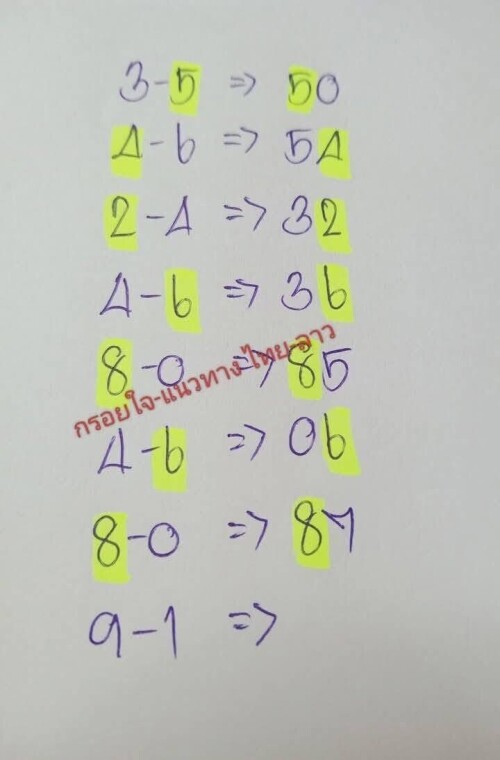 3-5 => 50
4-6 => 54
2-4 => 32
4-6 => 36
8-0 => 85
กรอยใจ-แนวทาง-ไทย-ลาว
4-6 => 06
8-0 => 87
9-1 =>